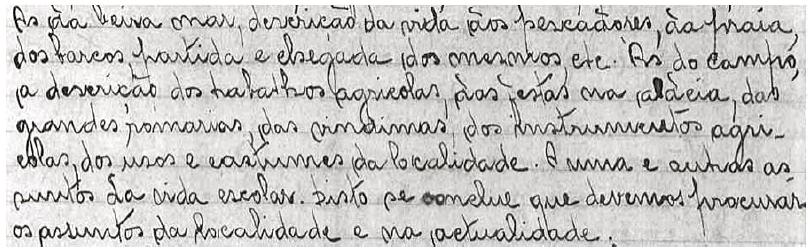 As da beira mar, descrição da vida dos pescadores, da praia,
dos barcos, partida e chegada dos mesmos etc. As do campo,
a descrição dos trabalhos agricolas, das festas na aldeia, das
grandes romarias, das vindimas, dos instrumentos agri-
colas, dos usos e costumes da localidade. A uma e outras as
suntos da vida escolar. Disto se conclue que devemos procurar
os assuntos da localidade e na actualidade.